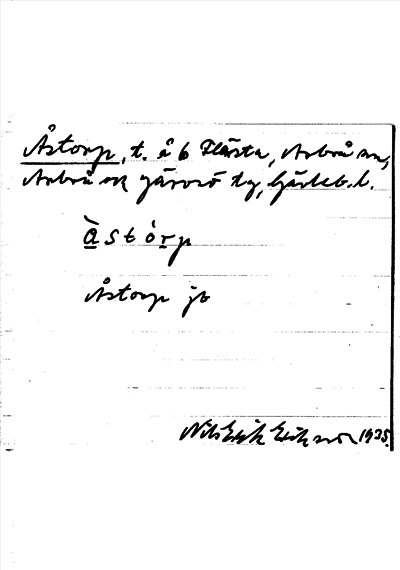 Åstorp, t. å 6 Flästa, Arbrå sn,
Arbrå ok Järvsö tg, Gävleb. l.
å̀ s t ó r p
Åstorp jb
Nils Erik Eriksson 1935.